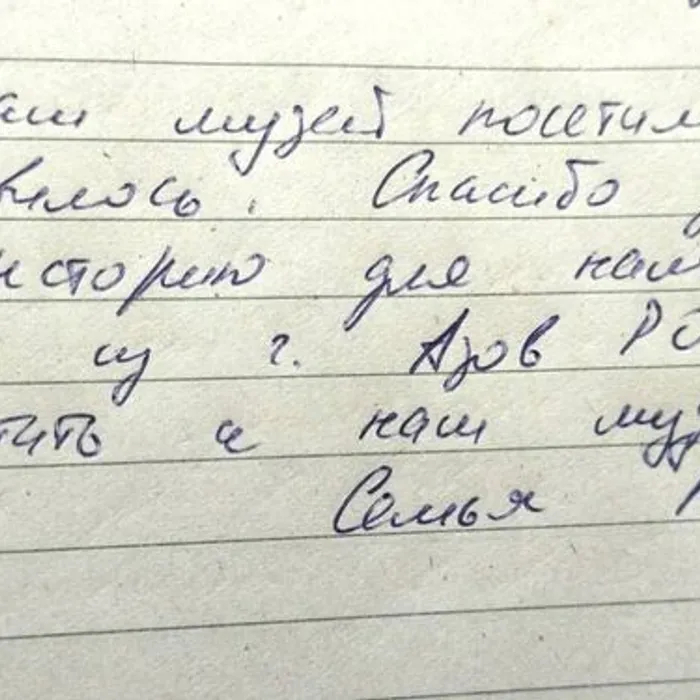 аш музей посетил
вилось. Спасибо
историю для нам
из г. Азов РО
тить и наш муз
Семья